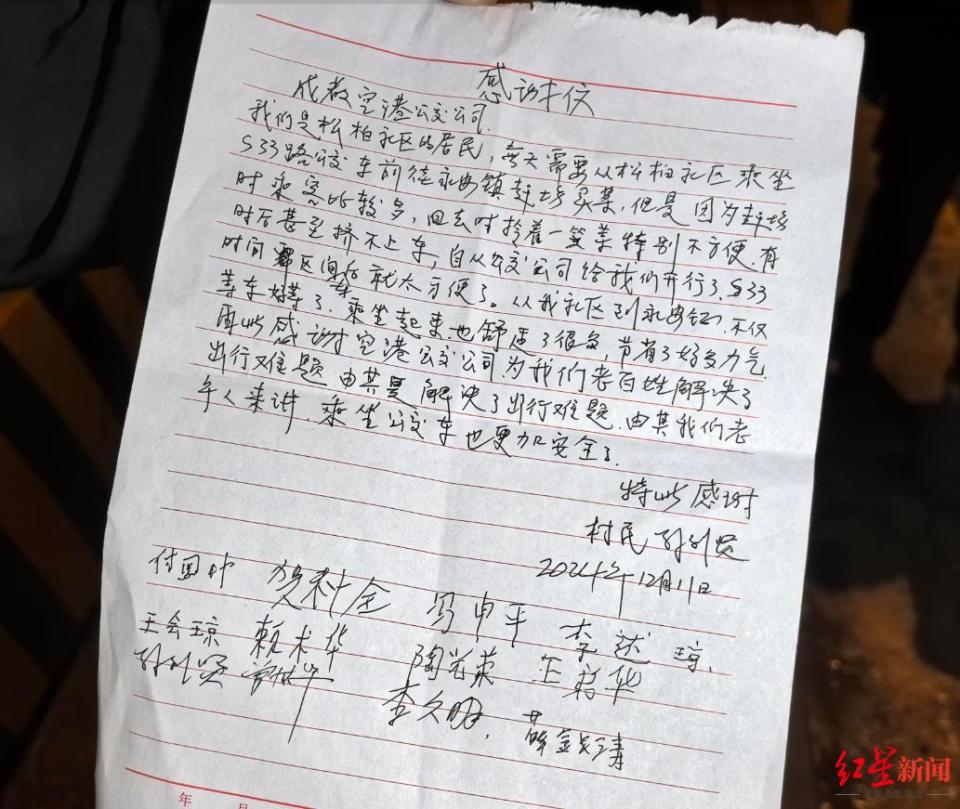 感谢信
成都空港公交公司.
我们是松柏社区的居民，每天需要从松柏社区乘坐
S33路公交车前往永安镇赶场买菜，但是因为赶场
时乘客比较多，回去时拎着一篮菜特别不方便.有
时后甚至挤不上车，自从公交公司给我们开行了S33
时间 区间车后就太方便了。从我社区到永安 ，不仅
等车好等了.乘坐起来也舒适了很多，节省了好多力气.
因此感谢空港公交公司为我们老百姓解决了
出行难题.由其是解决了出行难题.由其我们老
年人来讲.乘坐公交车也更加安全了.
特此感谢
村民
2024年12月11日
付国中 贺科全 冯中平 李述琼.
王会琼 赖术华 陶
李久明. 薛
年 月
红星新闻